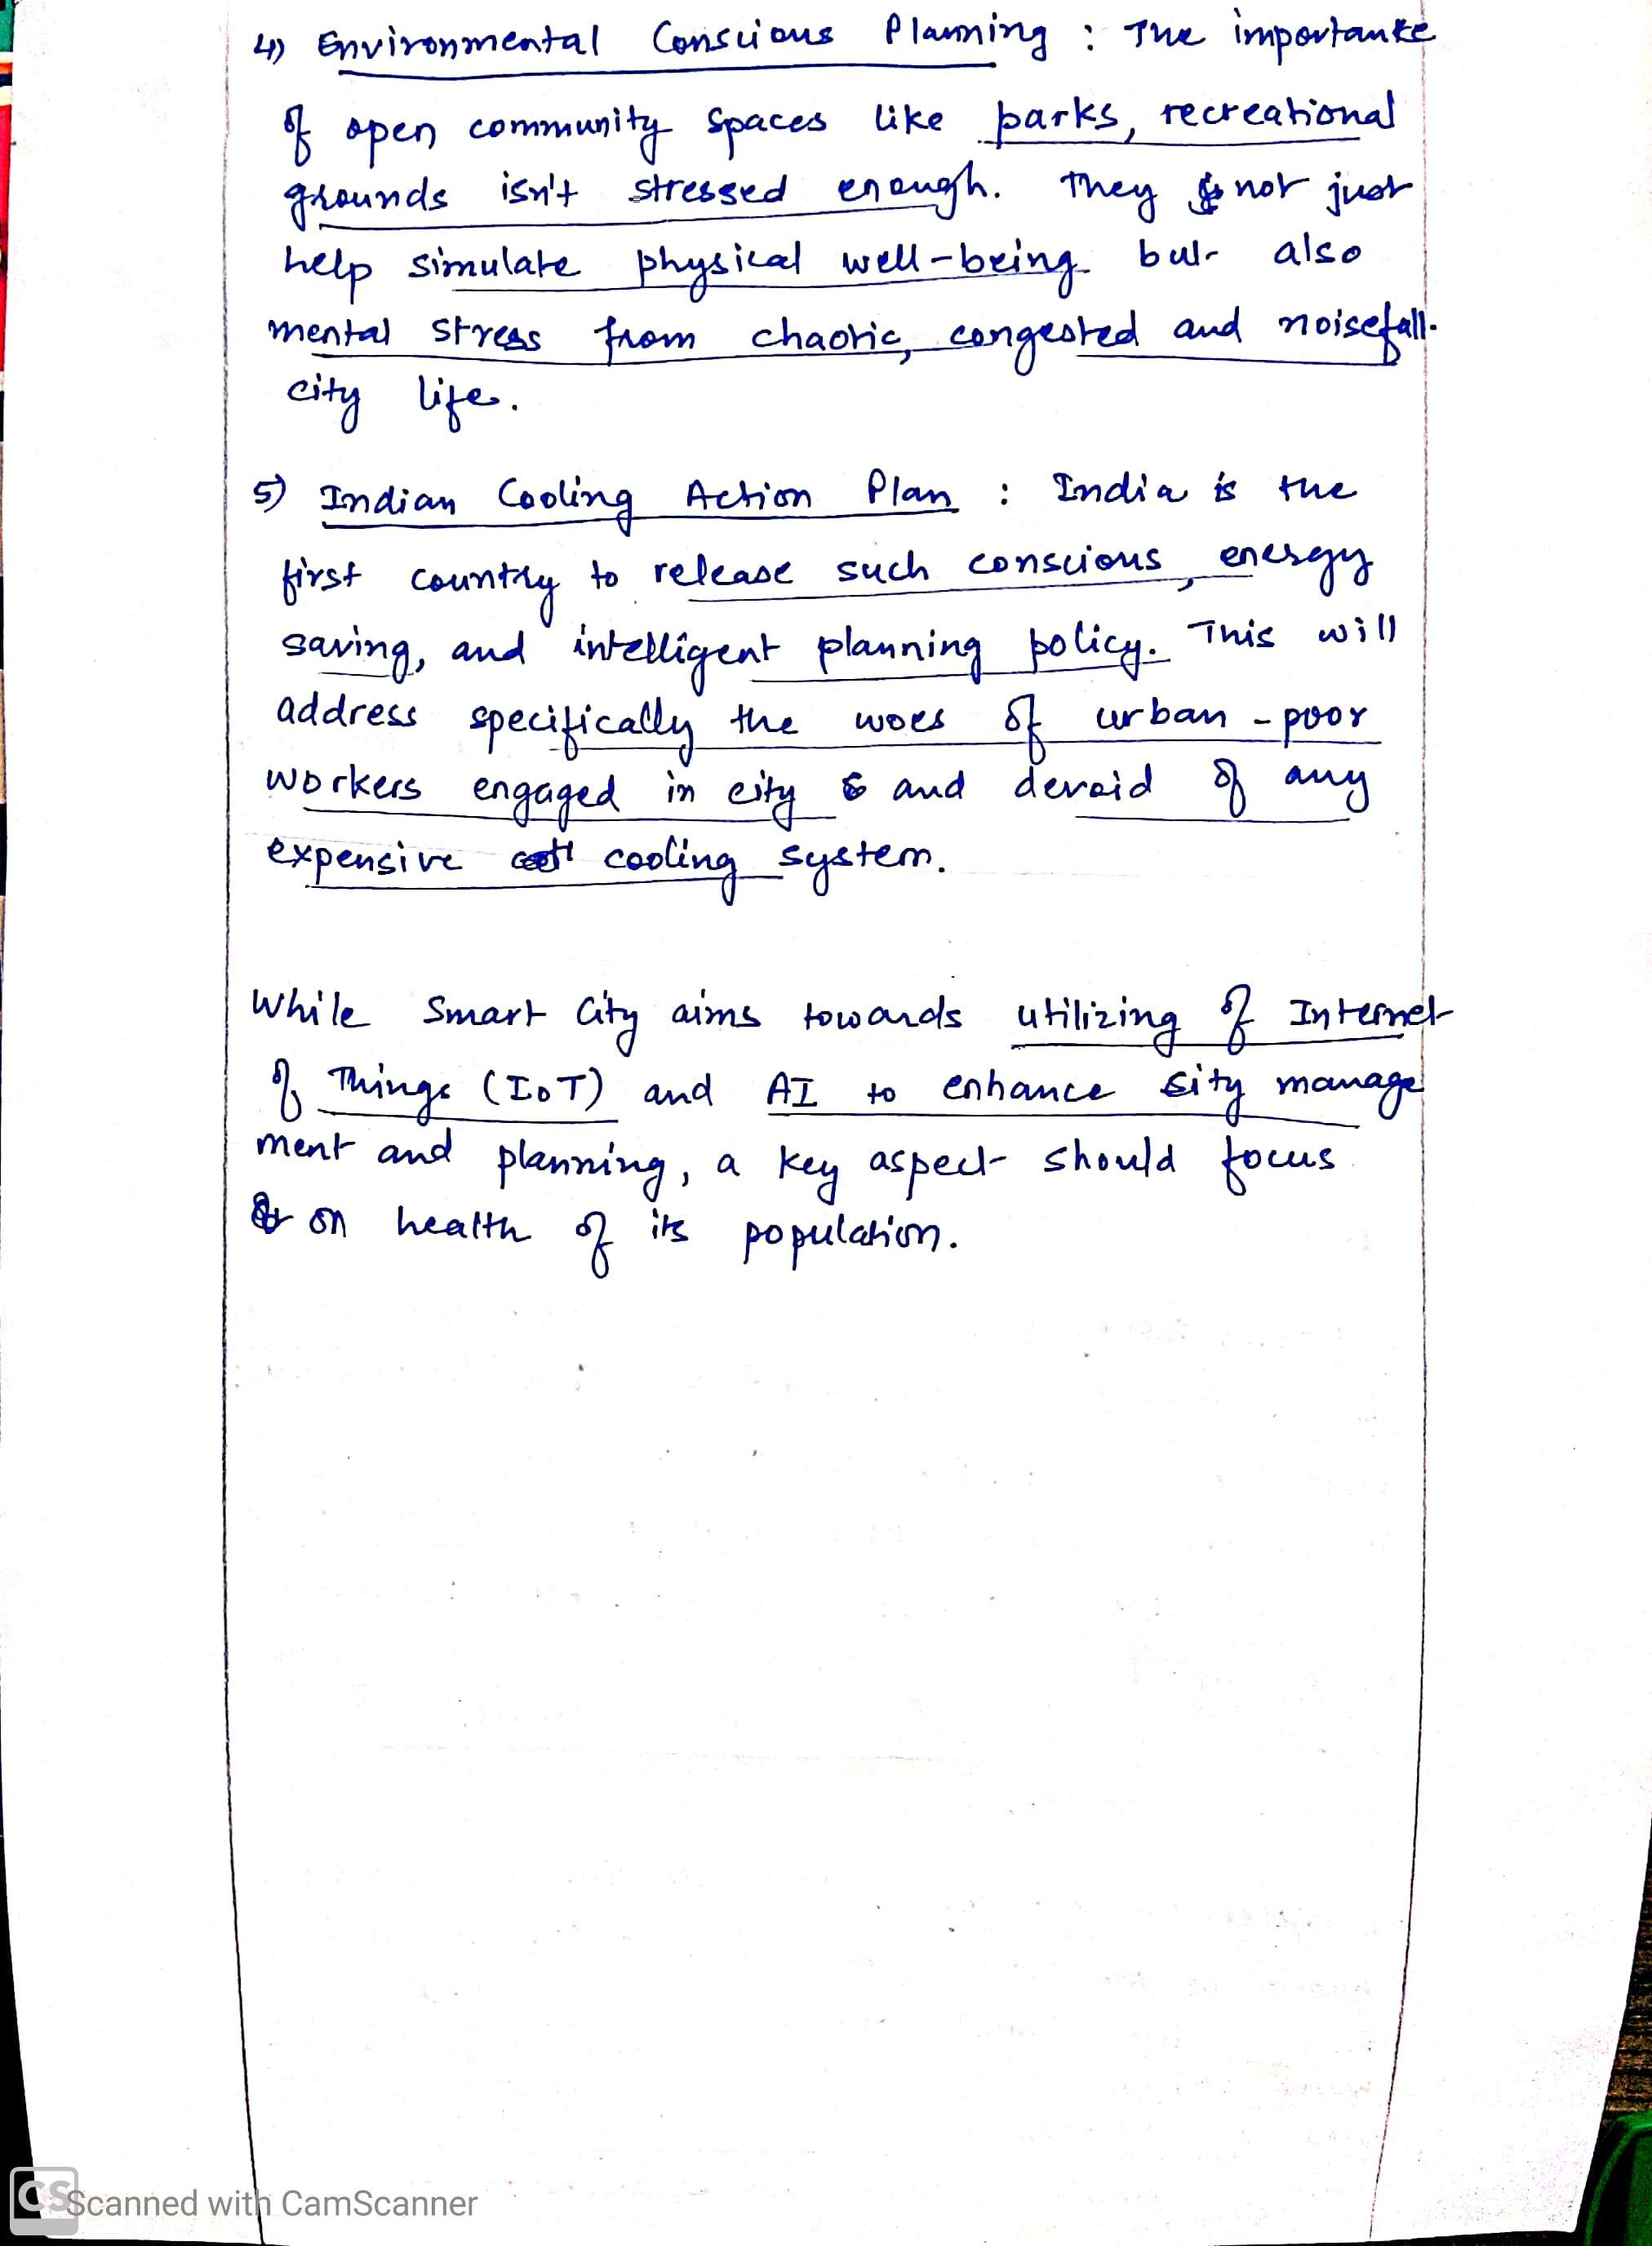 4) Environmental Conscious Planning : The importance
of open community spaces like parks, recreational
grounds isn't stressed enough. They not just
help simulate physical well-being but also
mental stress from chaotic, congested and noisefall
city life.
5) Indian Cooling Action Plan : India is the
first country to release such conscious, energy
saving, and intelligent planning policy. This will
address specifically the woes of urban-poor
workers engaged in city and devoid of any
expensive cooling system.
While Smart City aims towards utilizing of Internet
of Things (IoT) and AI to enhance city manage
ment and planning, a key aspect should focus
on health of its population.
CS Scanned with CamScanner